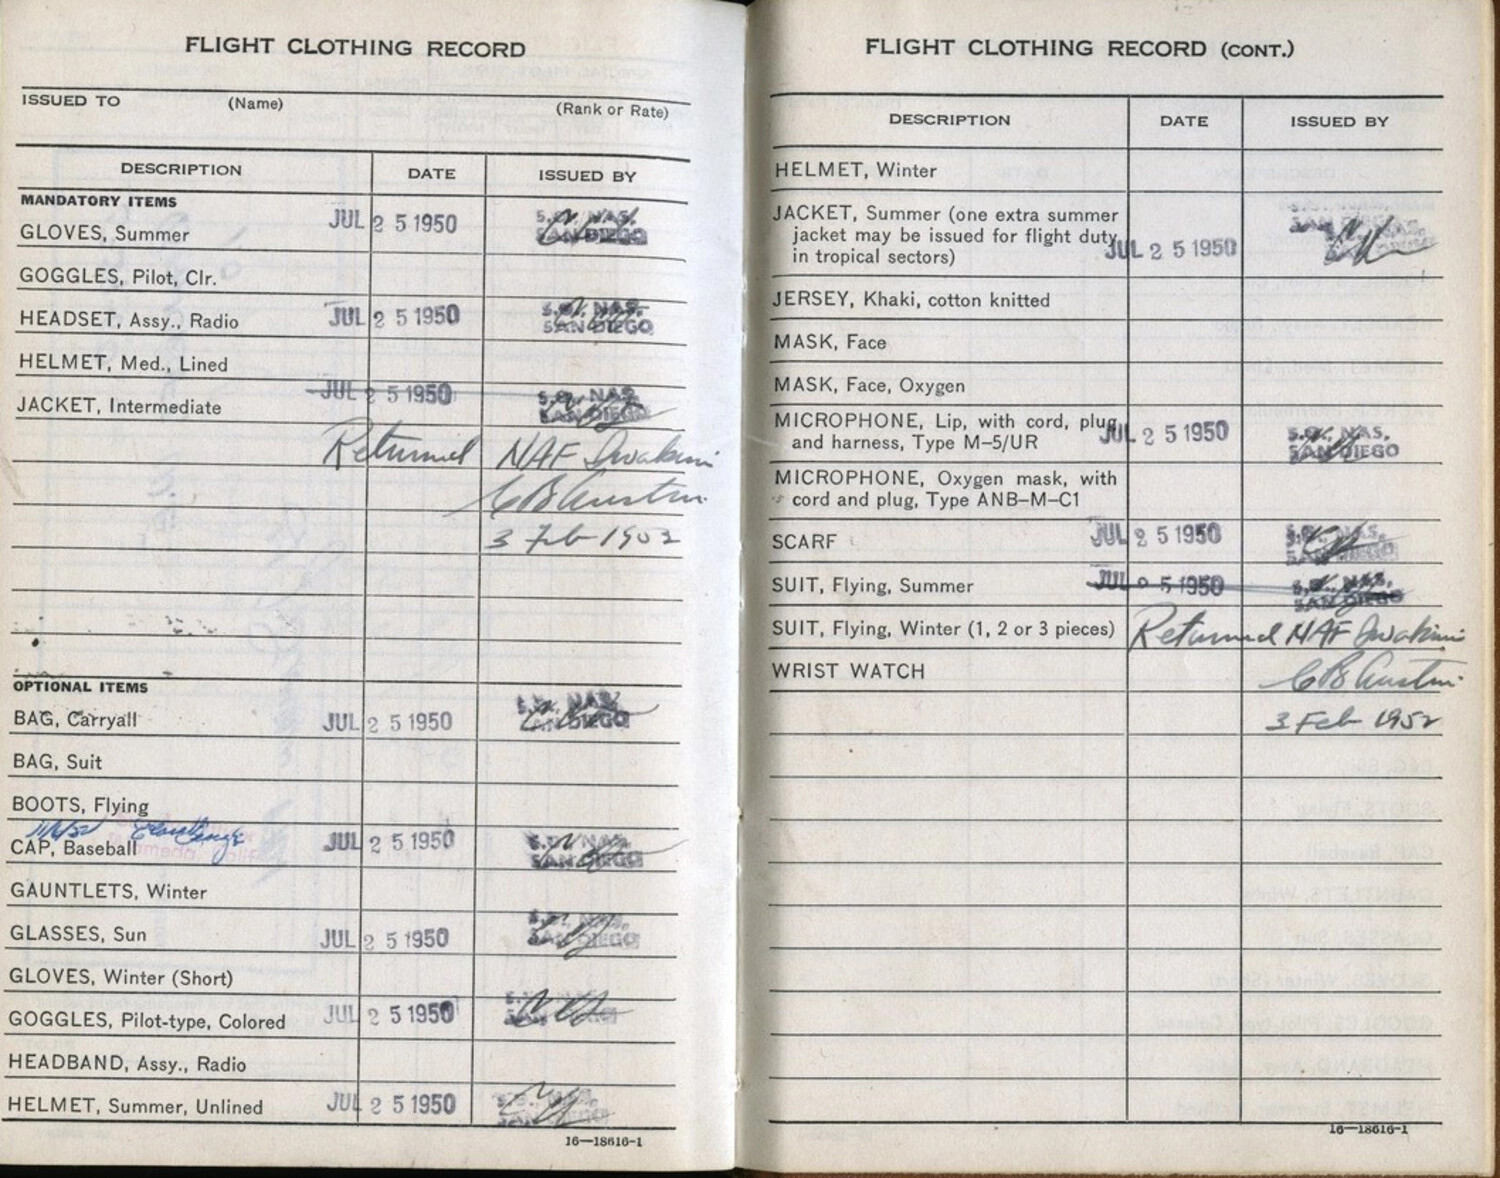 FLIGHT CLOTHING RECORD
ISSUED TO (Name) (Rank or Rate)
DESCRIPTION DATE ISSUED BY
MANDATORY ITEMS
GLOVES, Summer JUL 25 1950 S.O., NAS, SAN DIEGO
GOGGLES, Pilot, Clr.
HEADSET, Assy., Radio JUL 25 1950 S.O., NAS, SAN DIEGO
HELMET, Med., Lined
JACKET, Intermediate JUL 25 1950 S.O., NAS, SAN DIEGO
Returned NAF Iwakuni
C B Austin
3 Feb 1952
OPTIONAL ITEMS
BAG, Carryall JUL 25 1950 S.O., NAS, SAN DIEGO
BAG, Suit
BOOTS, Flying
CAP, Baseball JUL 25 1950 S.O., NAS, SAN DIEGO
GAUNTLETS, Winter
GLASSES, Sun JUL 25 1950 S.O., NAS, SAN DIEGO
GLOVES, Winter (Short)
GOGGLES, Pilot-type, Colored JUL 25 1950
HEADBAND, Assy., Radio
HELMET, Summer, Unlined JUL 25 1950 SAN DIEGO
16—18616-1
FLIGHT CLOTHING RECORD (CONT.)
DESCRIPTION DATE ISSUED BY
HELMET, Winter
JACKET, Summer (one extra summer
jacket may be issued for flight duty
in tropical sectors) JUL 25 1950
JERSEY, Khaki, cotton knitted
MASK, Face
MASK, Face, Oxygen
MICROPHONE, Lip, with cord, plug
and harness, Type M-5/UR JUL 25 1950 S.O., NAS, SAN DIEGO
MICROPHONE, Oxygen mask, with
cord and plug, Type ANB-M-C1
SCARF JUL 25 1950 S.O., NAS, SAN DIEGO
SUIT, Flying, Summer JUL 25 1950 S.O., NAS, SAN DIEGO
SUIT, Flying, Winter (1, 2 or 3 pieces) Returned NAF Iwakuni
WRIST WATCH C B Austin
3 Feb 1952
16—18616-1